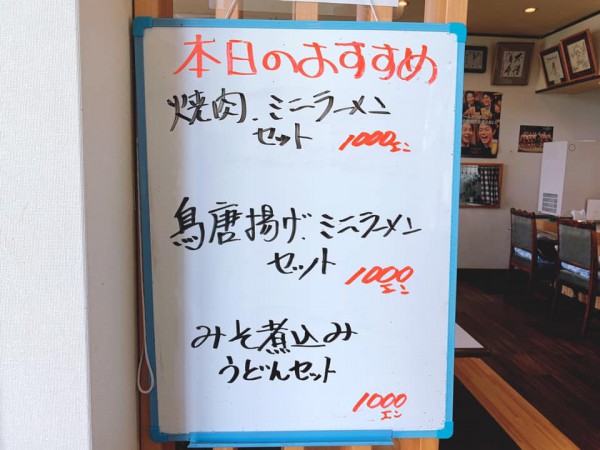 本日のおすすめ
焼肉.ミニラーメン
セット 1000エン
鳥唐揚げ.ミニラーメン
セット
1000
エン
みそ煮込み
うどんセット
1000
エン